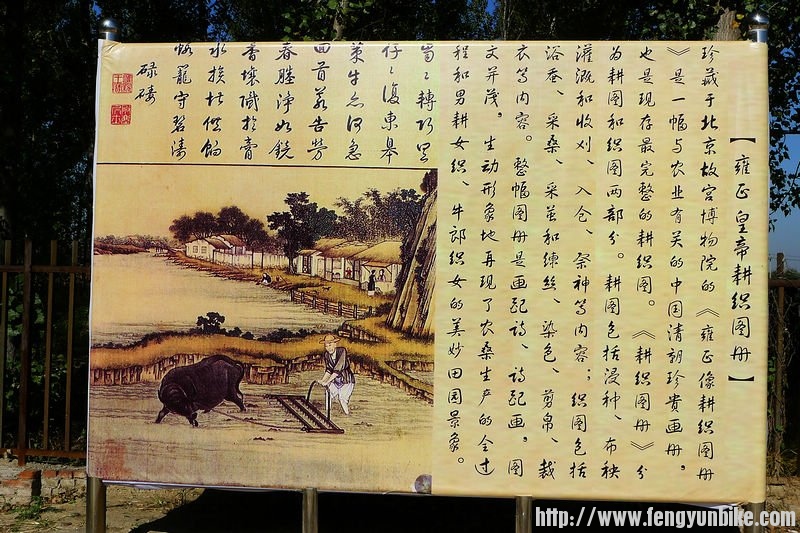 【雍正皇帝耕织图册】
珍藏于北京故宫博物院的《雍正像耕织图册
》是一幅与农业有关的中国清朝珍贵画册，
也是现存最完整的耕织图。《耕织图册》分
为耕图和织图两部分。耕图包括浸种、布秧
灌溉和收刈、入仓、祭神等内容；织图包括
浴蚕、采桑、采茧和练丝、染色、剪帛、裁
衣等内容。整幅图册是画配诗、诗配画。图
文并茂，生动形象地再现了农桑生产的全过
程和男耕女织、牛郎织女的美妙田园景象。
轉
復東皋
策牛何急
回首若告劳
春塍浄如鏡
香壤膩於膏
水供餉
守碧濤
碌碡
http://www.fengyunbike.com/